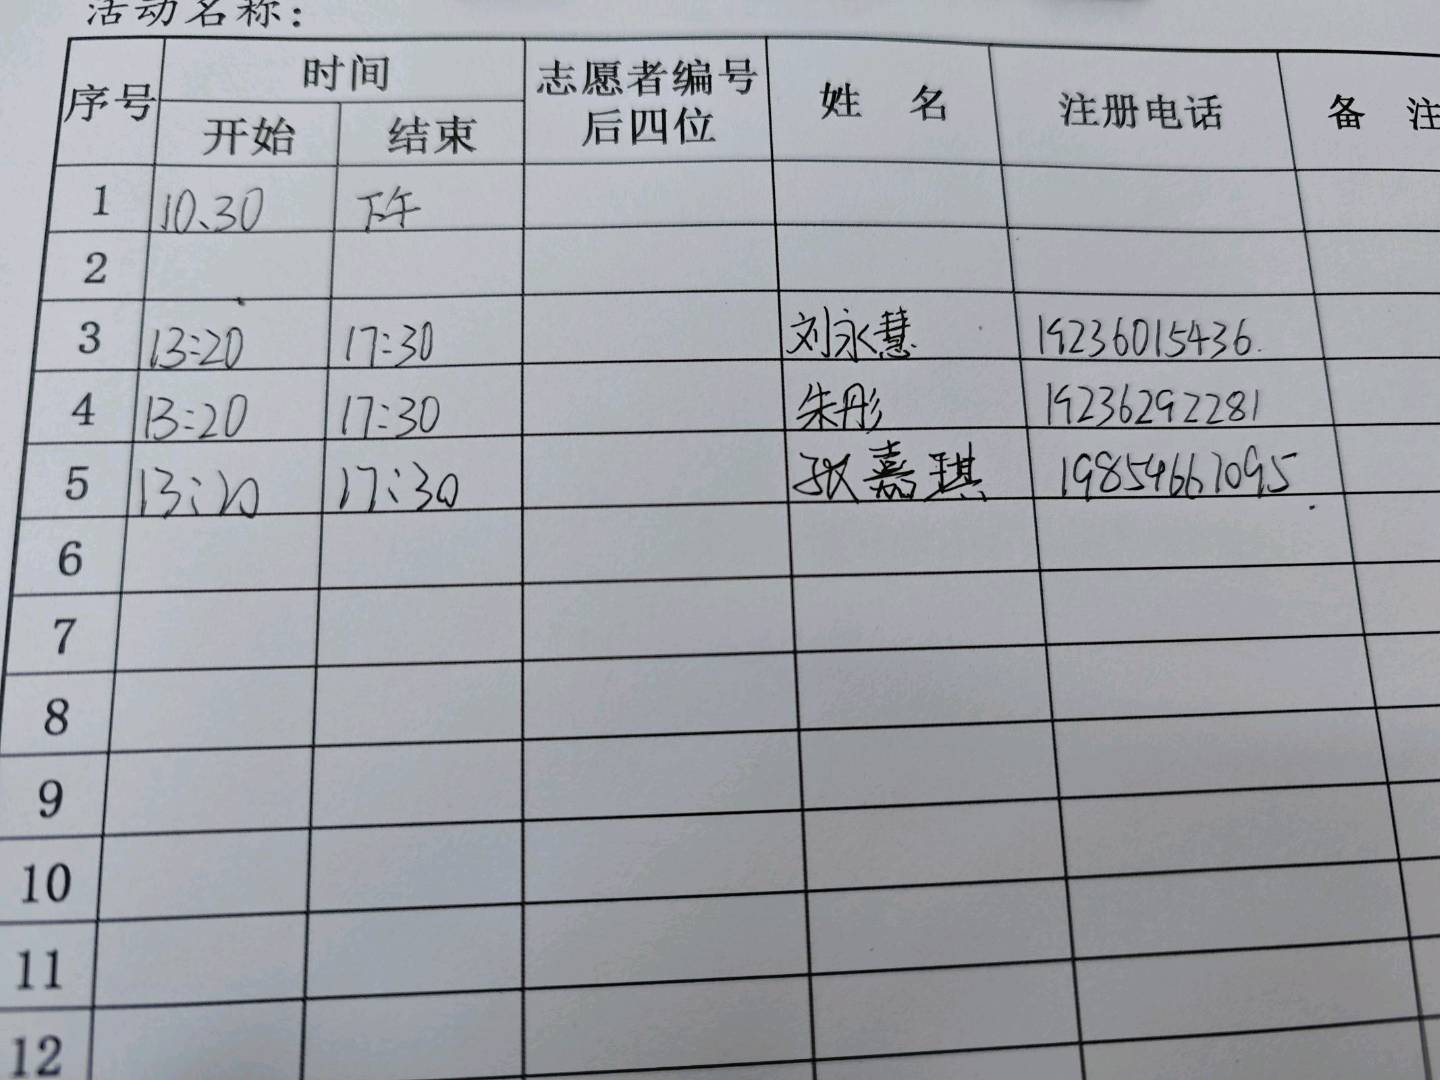 活动名称：
序号 时间 志愿者编号后四位 姓 名 注册电话 备 注
开始 结束
1 10、30 下午
2
3 13:20 17:30 刘永慧 19236015436
4 13:20 17:30 朱彤 19236292281
5 13:20 17:30 张嘉琪 19854667095
6
7
8
9
10
11
12